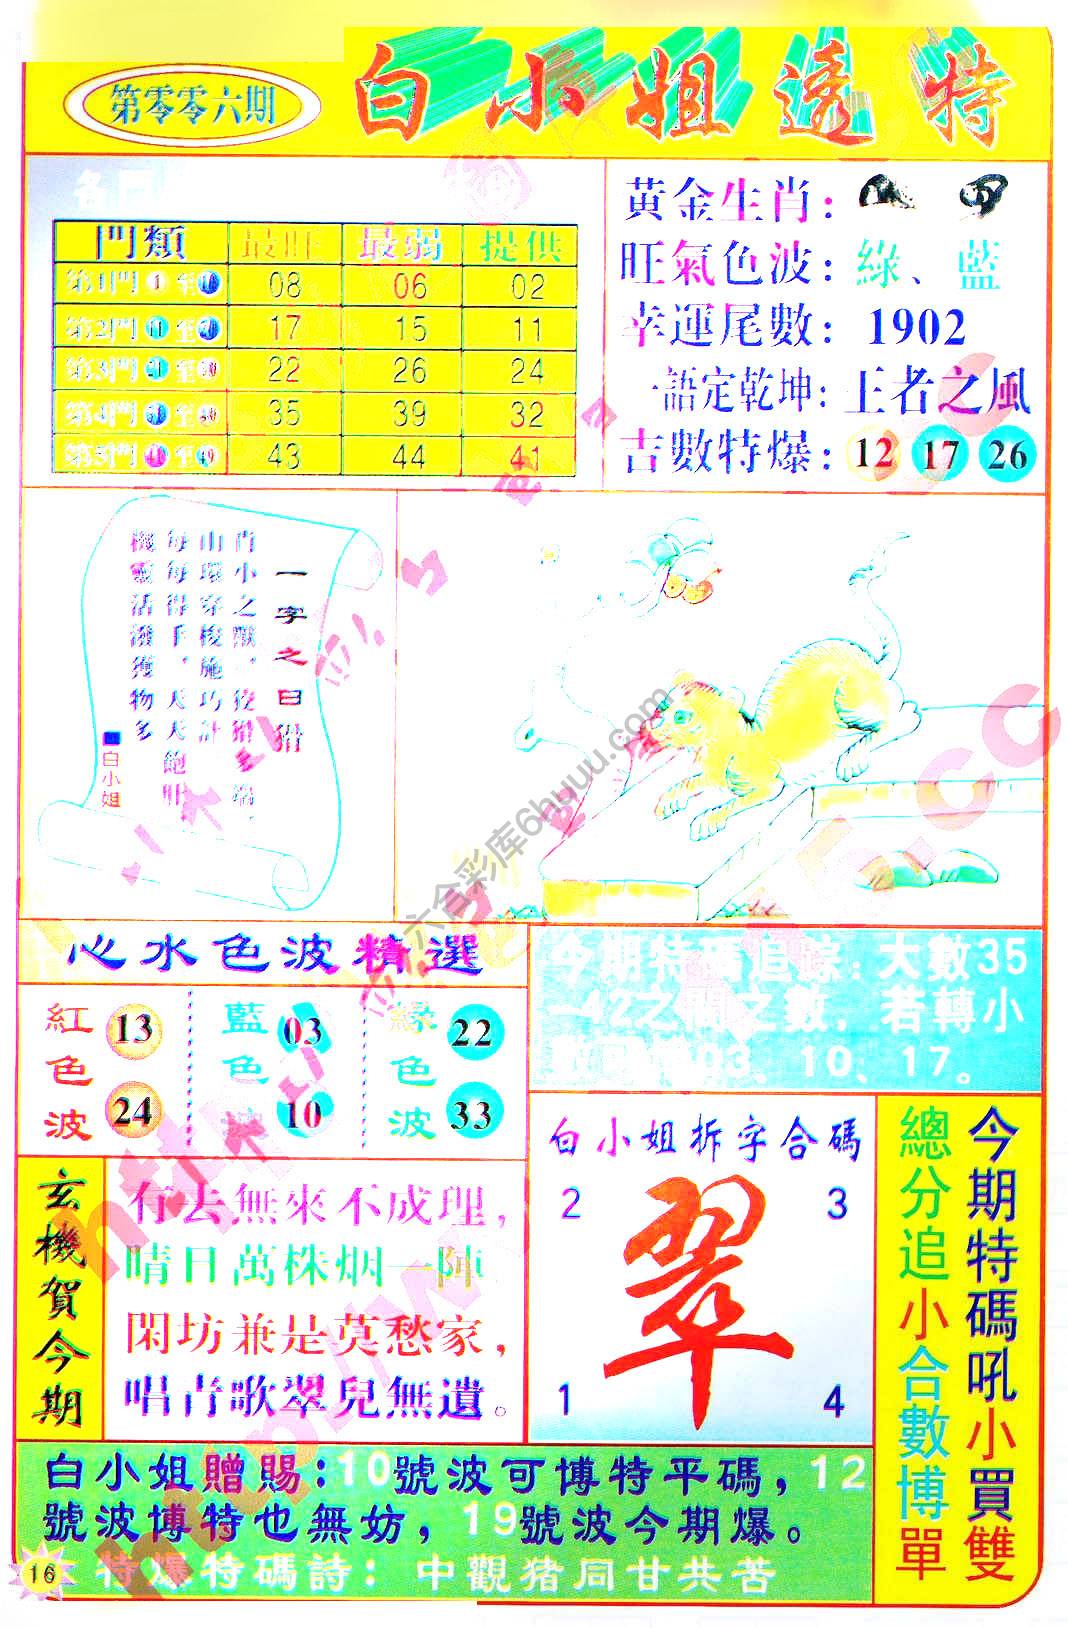 白小姐透特
第零零六期
門類 最旺 最弱 提供
第1門 1 至 10 08 06 02
第2門 11 至 20 17 15 11
第3門 21 至 30 22 26 24
第4門 至 35 39 32
第5門 41 至 49 43 44 41
黃金生肖：
旺氣色波：綠、藍
幸運尾數：1902
一語定乾坤：王者之風
吉數特爆：12 17 26
一字之曰猎
肖小之獸，
山環穿梭施巧計
每每得手，天天飽肚
機靈活潑獲物多
白小姐
六合彩库6huuu.com
心水色波精選
紅色波 13 24
藍色波 03 10
綠色波 22 33
今期特碼追踪：大數35
42之間之數，若轉小
03、10、17。
玄機賀今期
有去無來不成理，
晴日萬株烟一陣
閑坊兼是莫愁家，
唱青歌翠兒無遺。
白小姐拆字合碼
2 3
翠
1 4
今期特碼吼小買雙
總分追小合數博單
白小姐贈賜：10號波可博特平碼，12
號波博特也無妨，19號波今期爆。
特爆特碼詩：中觀猪同甘共苦
16